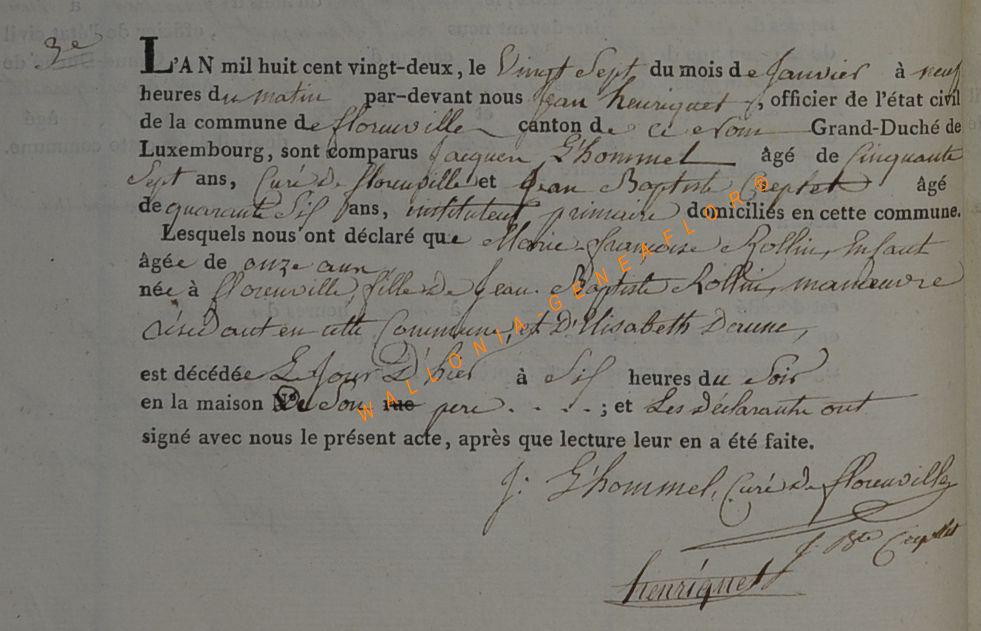 3e
L'AN mil huit cent vingt-deux, le Vingt Sept du mois de Janvier à neuf
heures du matin par-devant nous Jean henriquet, officier de l'état civil
de la commune de florenville canton de ce Nom Grand-Duché de
Luxembourg, sont comparus Jacques L'hommel âgé de Cinquante
Sept ans, Curé de florenville et Jean Baptiste âgé
de quarante Sis ans, instituteur primaire domiciliés en cette commune.
Lesquels nous ont déclaré que Marie-françoise Rollin, Enfant
âgée de onze ans
née à florenville, fille de Jean Baptiste Rollin, manœuvre
résidant en cette Commune, et D'Elisabeth
est décédée Le Jour D'hier à Sis heures du Soir
en la maison De Son rue pere . . . . ; et Les déclarants ont
signé avec nous le présent acte, après que lecture leur en a été faite.
J: L'hommel, Curé de florenville
J. Bte
henriquet
WALLONIA-GENEAFLOR®